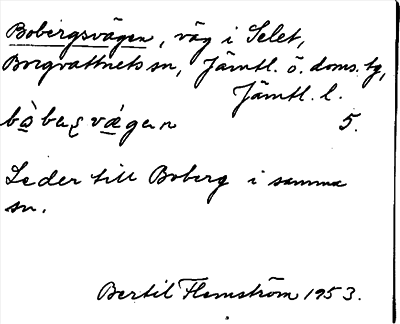 Bobergsvägen, väg i Selet,
Borgvattnets sn, Jämtl. ö. doms. tg,
Jämtl. l.
bo̱̊̀beʂvǽ̱gen 5.
Leder till Boberg i samma
sn.
Bertil Flemström 1953.